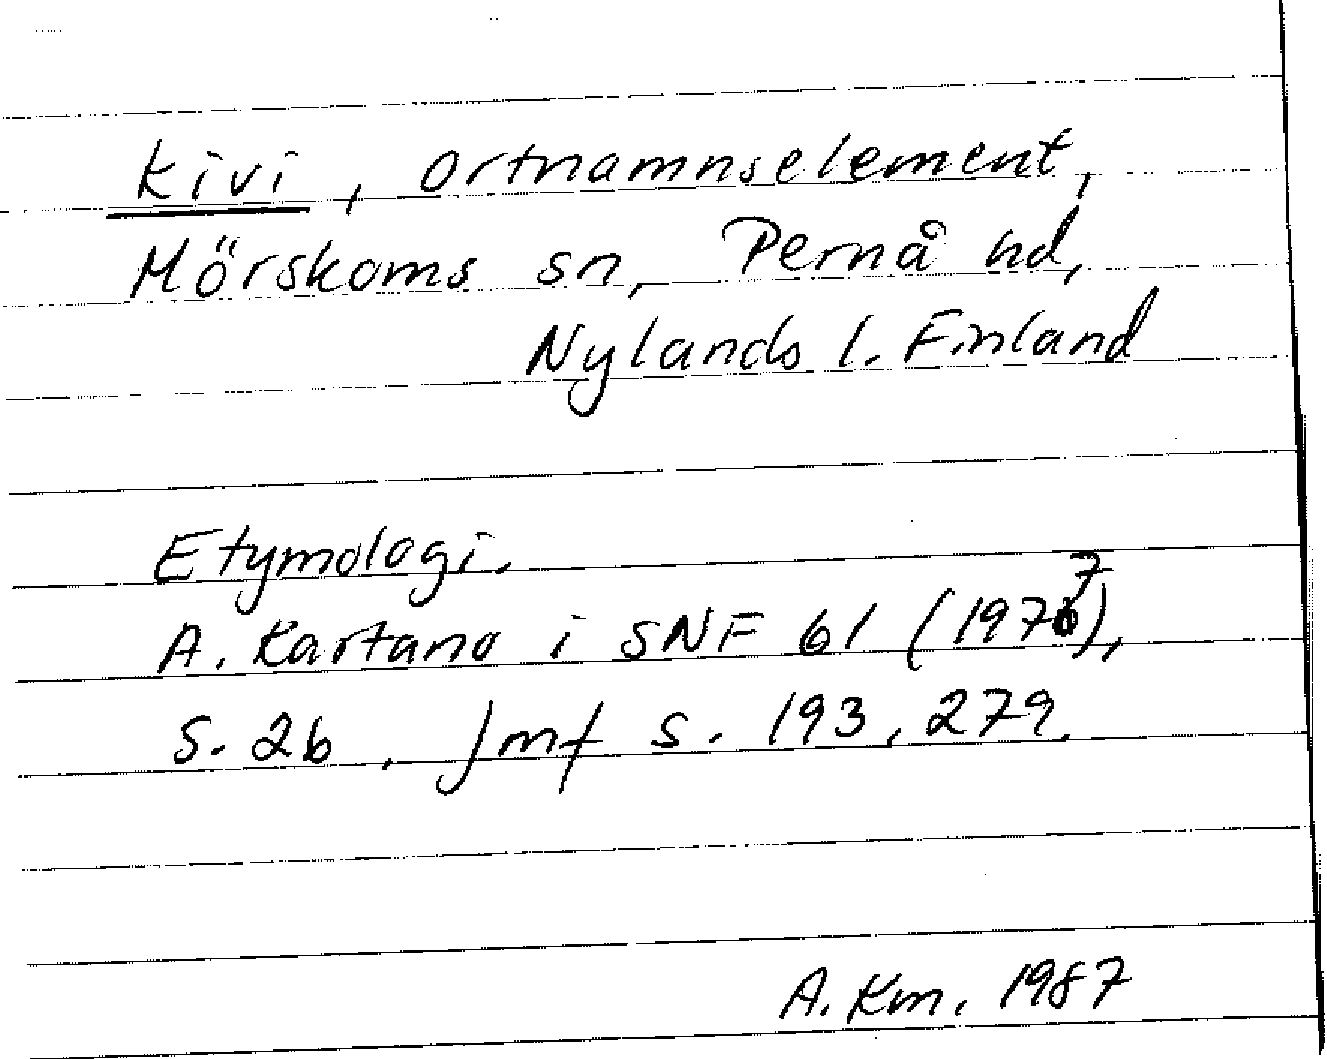 kivi, ortnamnselement,
Mörskoms sn, Pernå hd,
Nylands l. Finland
Etymologi.
A. Kartano i SNF 61 (1977),
s. 26, jmf s. 193, 279.
A. Km. 1987